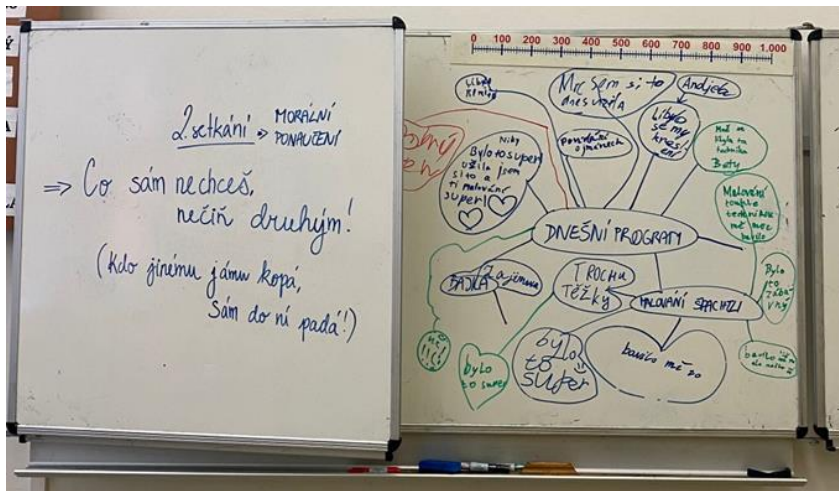 2. setkání => MORÁLNÍ
PONAUČENÍ
=> Co sám nechceš,
nečiň druhým!
(Kdo jinému jámu kopá,
Sám do ní padá!)
0 100 200 300 400 500 600 700 800 900 1.000
Mě sem si to
dnes užila
Andjela
povídání
o jménech
Líbylo
se my
kreslení
Niky
Bylo to super
užila jsem
si to a
ti malování
super!
Mně se
líbyla ta
technika
Bety
Malování
touhle
technikou
mě moc
bavilo
DNEŠNÍ PROGRAM
BAJKA
Zajímava
TROCHU
TĚŽKY
MALOVÁNÍ ŠPACHTLÍ
Bylo
to
zába
vný
bylo
to super
bylo
to
super
bavilo mě to
bavilo mě